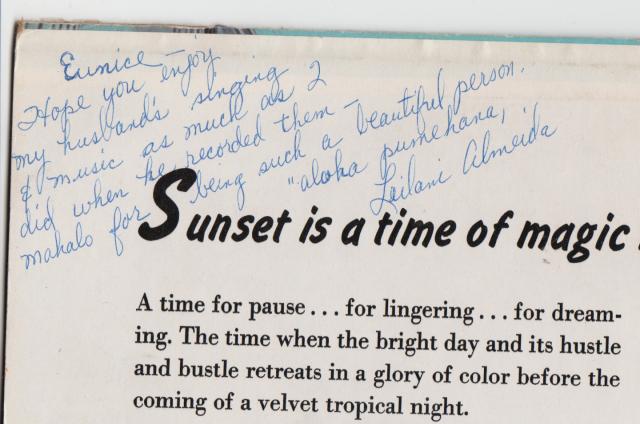 Eunice —
Hope you enjoy
my husband's singing
& music as much as I
did when he recorded them —
mahalo for being such a beautiful person.
"aloha pumehana,"
Leilani Almeida
Sunset is a time of magic
A time for pause . . . for lingering . . . for dream-
ing. The time when the bright day and its hustle
and bustle retreats in a glory of color before the
coming of a velvet tropical night.